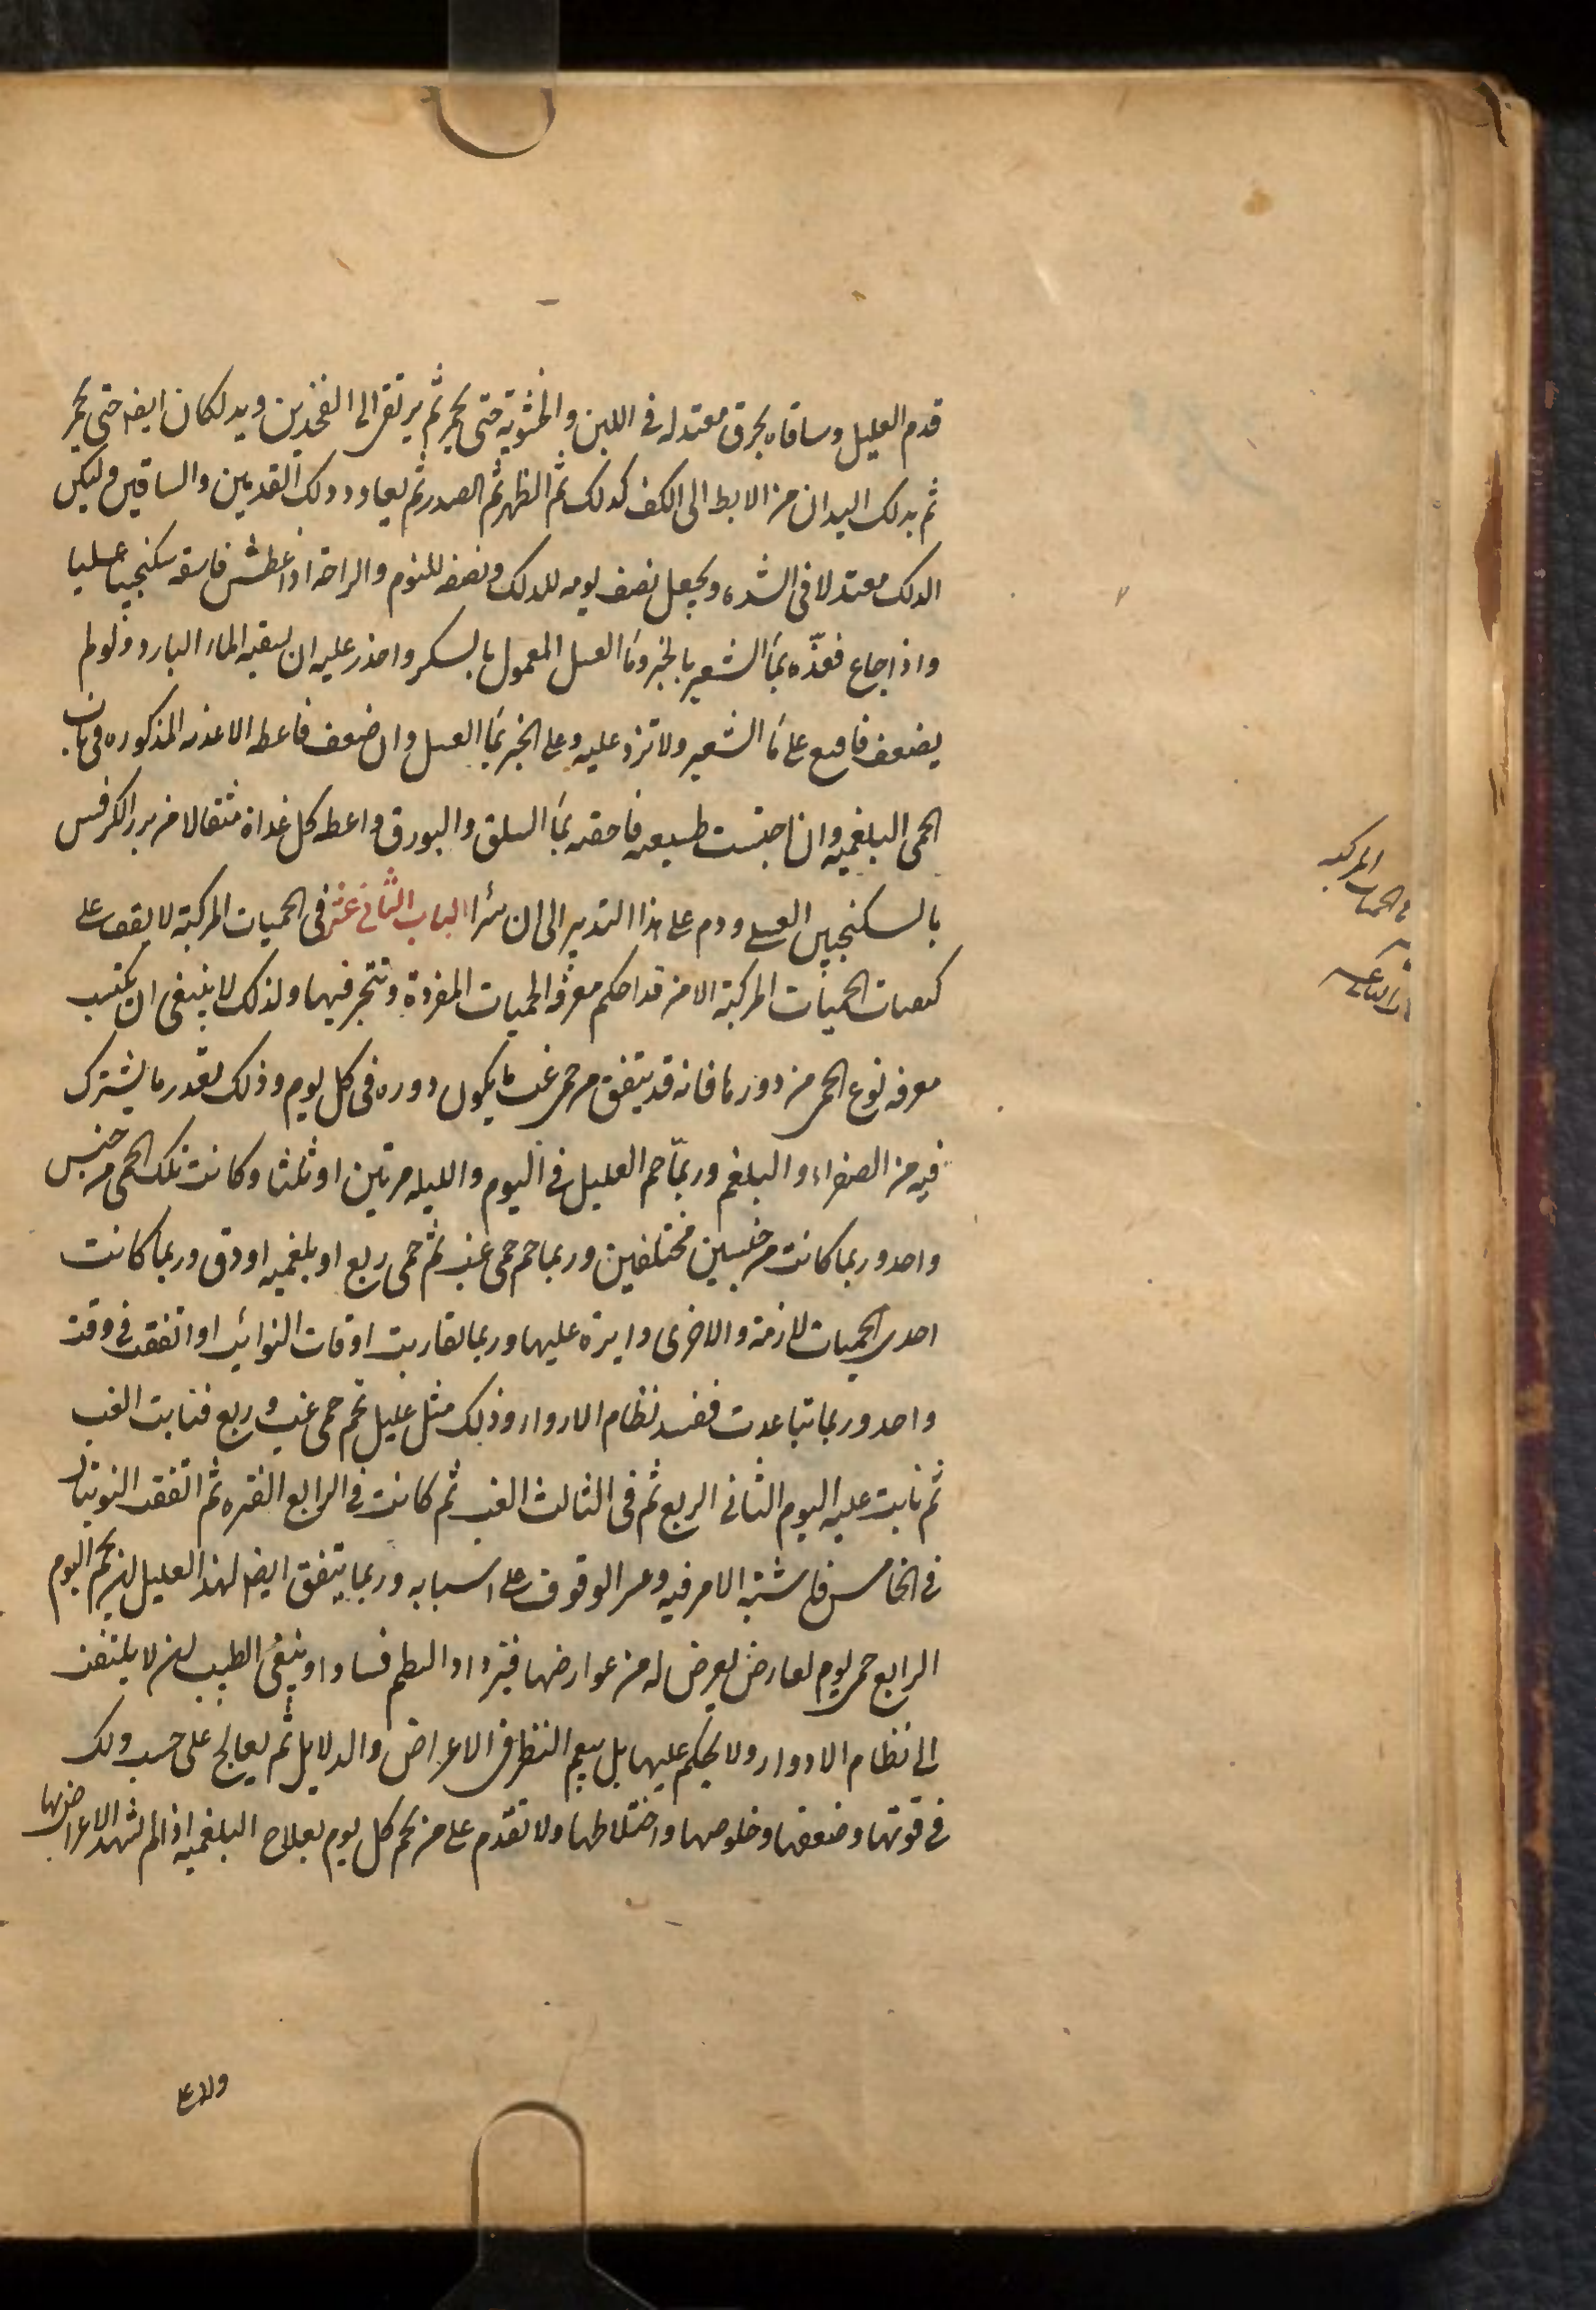 قدم العليل وساقاه بخرق معتدله في اللين والخشونة حتى يحمر ثم يرتقى الى الفخذين ويدلكان ايضه حتى يحمر
ثم يدلك اليدان من الابط الى الكف كذلك ثم الظهر ثم الصدر ثم يعاود دلك القدمين والساقين وليكن
الدلك معتدلا فى الشده ويجعل نصف يومه للدلك ونصفه للنوم والراحة اذا عطش فاسقه سكنجبينا عسليا
واذا جاع فغذّه بماء الشعير بالخبز وماء العسل المعمول بالسكر واحذر عليه ان يسقيه الماء البارد ولو لم
يضعف فاقنع على ماء الشعير ولا تزد عليه وعلى الخبز بماء العسل وان ضعف فاعطه الاغذيه المذكوره فى باب
الحمى البلغميه وان احتبست طبيعته فاحقنه بماء السلق والبورق واعطه كل غداة مثقالا من بزر الكرفس
بالسكنجبين العسلى ودم على هذا التدبير الى ان يبرا الباب الثانى عشر فى الحميات المركبة لا يقف على
الحميات المركبة الا من قد احكم معرفه الحميات المفردة وتبحر فيها ولذلك لا ينبغى ان يكتسب
معرفه نوع الحمى من دورها فانه قد يتفق من حمى غب ما يكون دوره فى كل يوم وذلك بقدر ما يشترك
فيه من الصفراء والبلغم وربما حم العليل فى اليوم والليله مرتين او ثلثا وكانت تلك الحمى من جنس
واحد وربما كانت من جنسين مختلفين وربما حم حمى غب ثم حمى ربع او بلغميه او دق وربما كانت
احدى الحميات لازمة والاخرى دايرة عليها وربما تقاربت اوقات النوايب او اتفقت فى وقت
واحد وربما تباعدت ففسد نظام الادوار وذلك مثل عليل يحم حمى غب وربع فنابت الغب
ثم نابت عليه اليوم الثانى الربع ثم فى الثالث الغب ثم كانت فى الرابع الفتره ثم اتفقت النوبتان
فى الخامس فاشتبه الامر فيه وعسر الوقوف على اسبابه وربما يتفق ايضا لهذا العليل ان يحم اليوم
الرابع حمى يوم لعارض يعرض له من عوارضها فيزداد النظم فسادا وينبغى الطبيب ان لا يلتفت
الى نظام الادوار ولا يحكم عليها بل ينعم النظر فى الاعراض والدلايل ثم يعالج على حسب ذلك
فى قوتها وضعفها وخلوصها واختلاطها ولا تقدم على من يحم كل يوم بعلاج البلغميه اذا لم تشهد الاعراض بها
ولا على
المركبه
فى الحميات